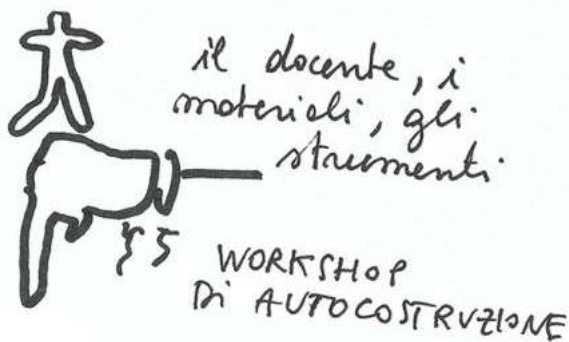 il docente, i
materiali, gli
strumenti
WORKSHOP
Di AUTOCOSTRUZIONE